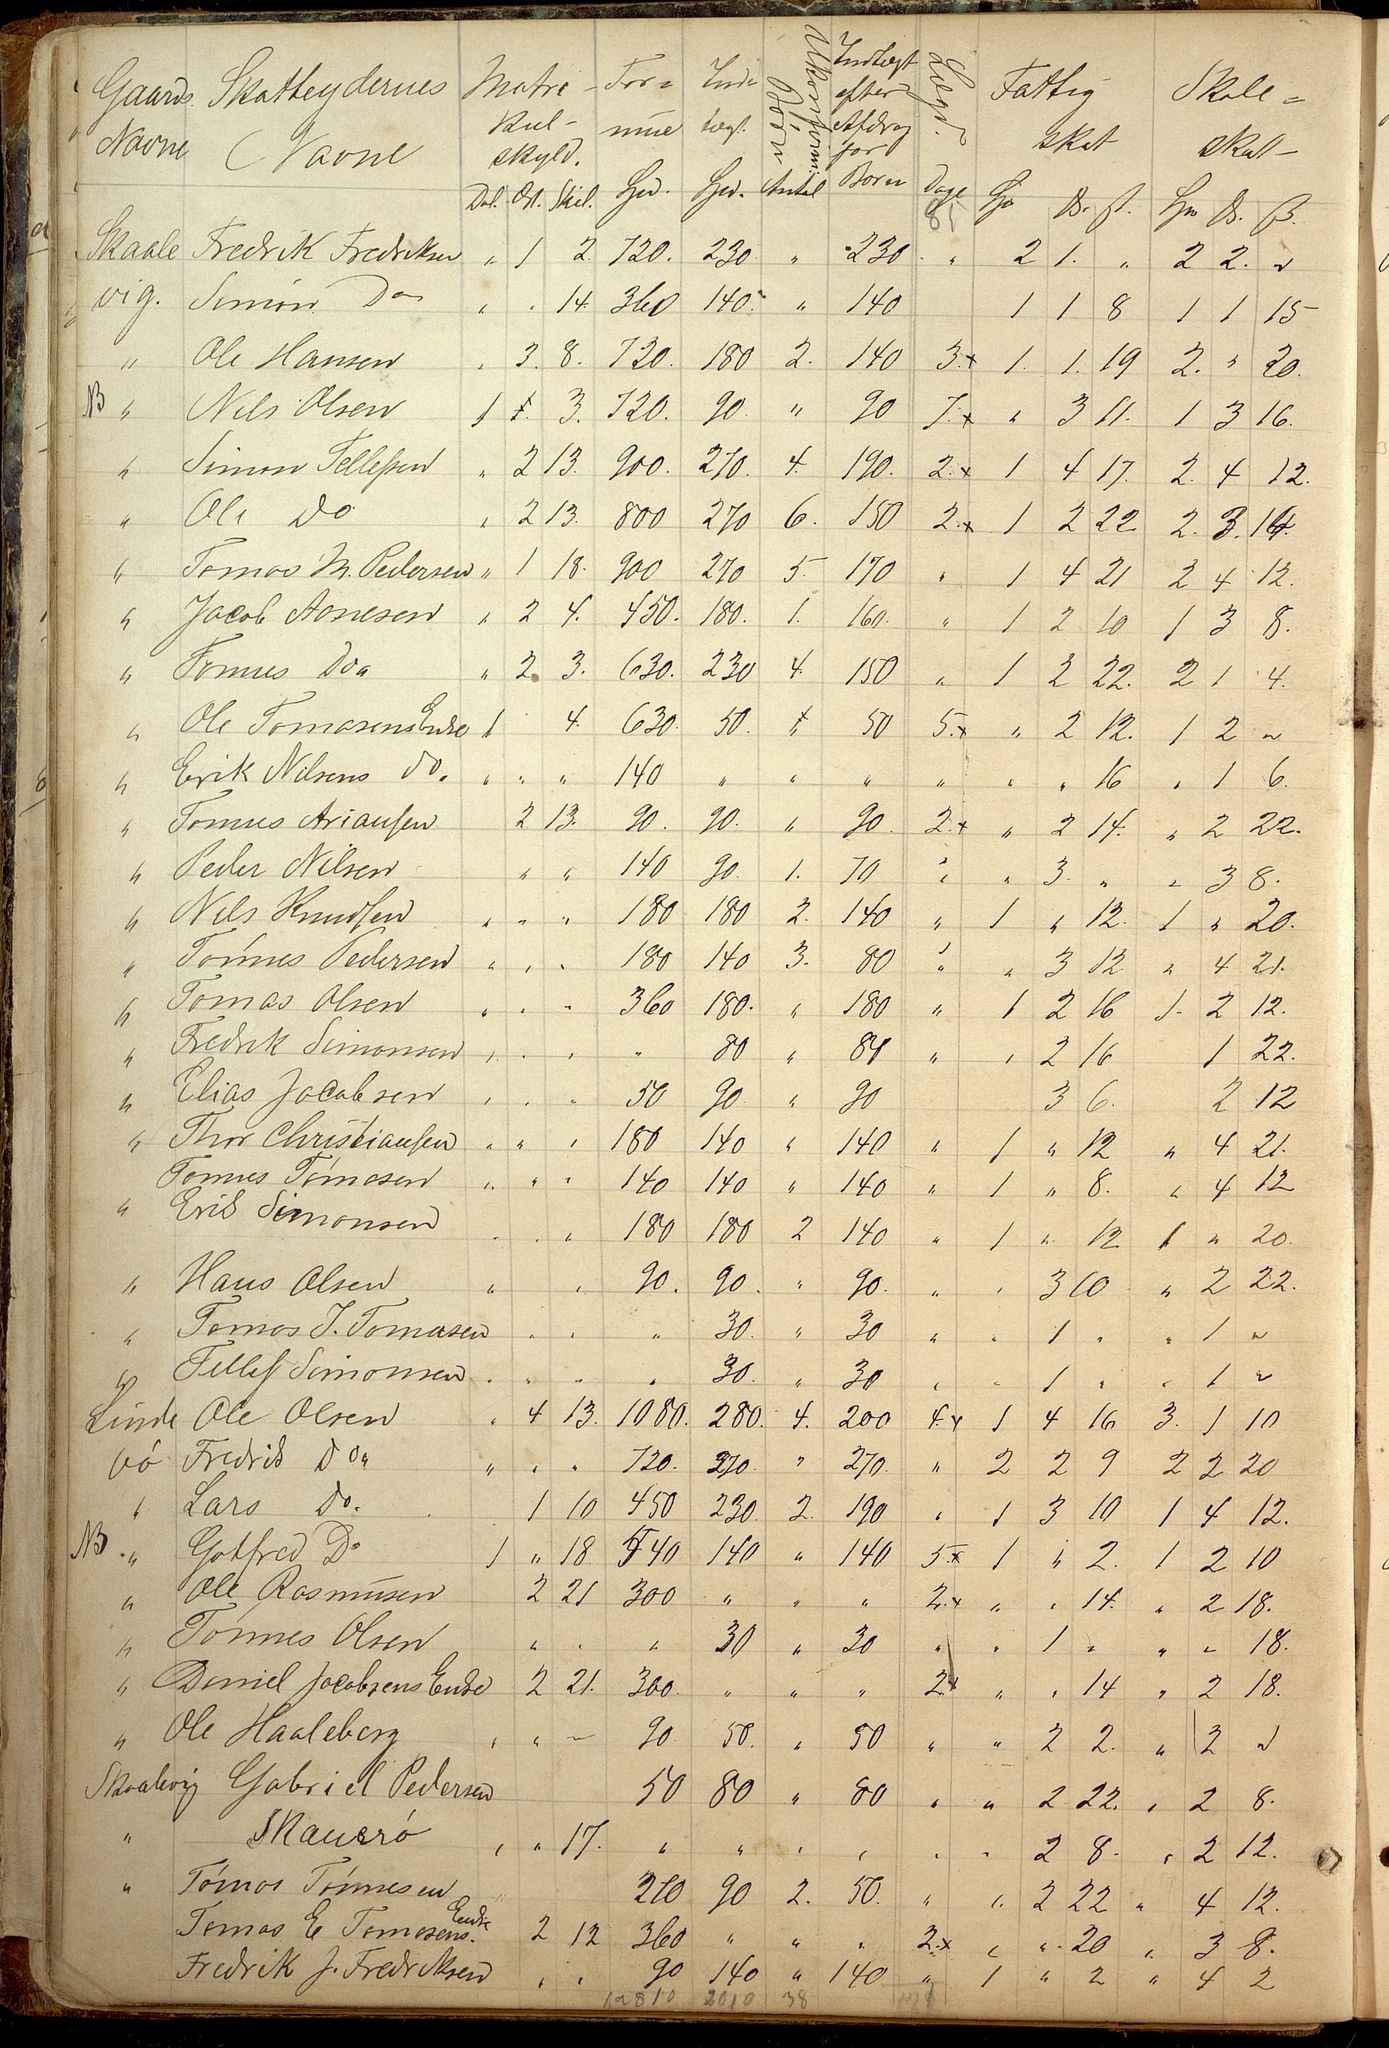 Gaards Navne | Skatteydernes Navne | Matrikul-skyld. | Formue | Indtægt. | Ukonfirm. Børn | Indtægt efter Afdrag for Børn | Lægd. | Fattig skat | Skole-skat
Dal. Ort. Skil. | Spd. | Spd. | Antal | | Dage | Sp ß. ß. | Sp ß. ß.
Skaale Fredrik Fredriksen " 1 2. 720. 230. " 230. " 2 1. " 2 2. "
vig. Simon Do " . 14. 360 140. " 140 1 1 8 1 1 15
" Ole Hansen " 3. 8. 720. 180 2. 140 3.x 1. 1. 19 2. " 20.
NB " Nils Olsen 1 1. 3. 720. 90. " 90 7.x " 3 11. 1 3 16.
" Simon Tellefsen " 2 13. 900. 270. 4. 190. 2.x 1 4 17. 2. 4 12.
" Ole Do " 2 13. 800 270 6. 150 2.x 1 2 22 2. 3. 14.
" Tomas M. Pedersen " 1 18. 900 270 5. 170 " 1 4 21 2 4 12.
" Jacob Aanesen " 2 4. 450. 180. 1. 160. " 1 2 10 1 3 8.
" Tomes Do " 2 3. 630. 230 4. 150 " 1 2 22. 2 1 4.
" Ole Tomasens Enke 1 4. 630. 50. " 50 5.x " 2 12. 1 2 "
" Erik Nilsens do. " " " 140 " " " " " " 16 " 1 6.
" Tomes Ariansen 2 13. 90. 90. " 90. 2.x " 2 14. " 2 22.
" Peder Nilsen " " 140 90. 1. 70 " " 3. " " 3 8.
" Nils Knudsen " " " 180 180 2. 140 " 1 " 12. 1 " 20.
" Tónnes Pedersen " " " 180 140 3. 80 " " 3 12 " 4 21.
" Tomas Olsen " " " 360 180. " 180 " 1 2 16 1. 2 12.
" Fredrik Simonsen " " " " 80 " 80 " " 2 16 1 22.
" Elias Jacobsen " " " 50 90 " 90 3 6. 2 12
" Thor Christiansen " " " 180 140 " 140 " 1 " 12 " 4 21.
Tomes Tómesen " " " 140 140 " 140 " 1 " 8. " 4 12
" Erik Simonsen " " " 180 180 2 140 " 1 " 12 1 " 20.
" Hans Olsen " " 90. 90. " 90. " " 3 10 " 2 22.
" Tomas J. Tomasen " " " 30. " 30 " " 1 " " 1 "
" Tellef Simonsen " " " " 30. " 30 " " 1 " " 1 "
Linde Ole Olsen " 4 13. 1080. 280. 4. 200 4x 1 4 16 3. 1 10
vó Fredrik Do " " " 720. 270. " 270. " 2 2 9 2 2 20
" Lars Do. 1 10 450 230. 2. 190 " 1 3 10 1 4 12.
NB " Gotfred Do 1 " 18. 540 140 " 140 5x 1 " 2. 1 2 10
" Ole Rasmusen 2 21 300 " " " 2.x " " 14. " 2 18.
" Tónnes Olsen " " " 30 " 30 " " 1 " " " 18.
" Daniel Jacobsens Enke 2 21. 300. " " " 2x " " 14 " 2 18.
" Ole Haaleberg " " " 90. 50. " 50 " " 2 2. " 2 "
Skaalevig Gabriel Pedersen 50 80 " 80 " " 2 22. " 2 8.
" Skaueró " " 17. " " " " " " 2 8. " 2 12.
" Tómas Tónnesen 270 90 2. 50. " " 2 22 " 4 12.
Tomas E Tomasens Enke 2 12 360 " " " 2.x " " 20 " 3 8.
Fredrik J. Fredriksen " " 90 140 " 140 " 1 " 2 " 4 2